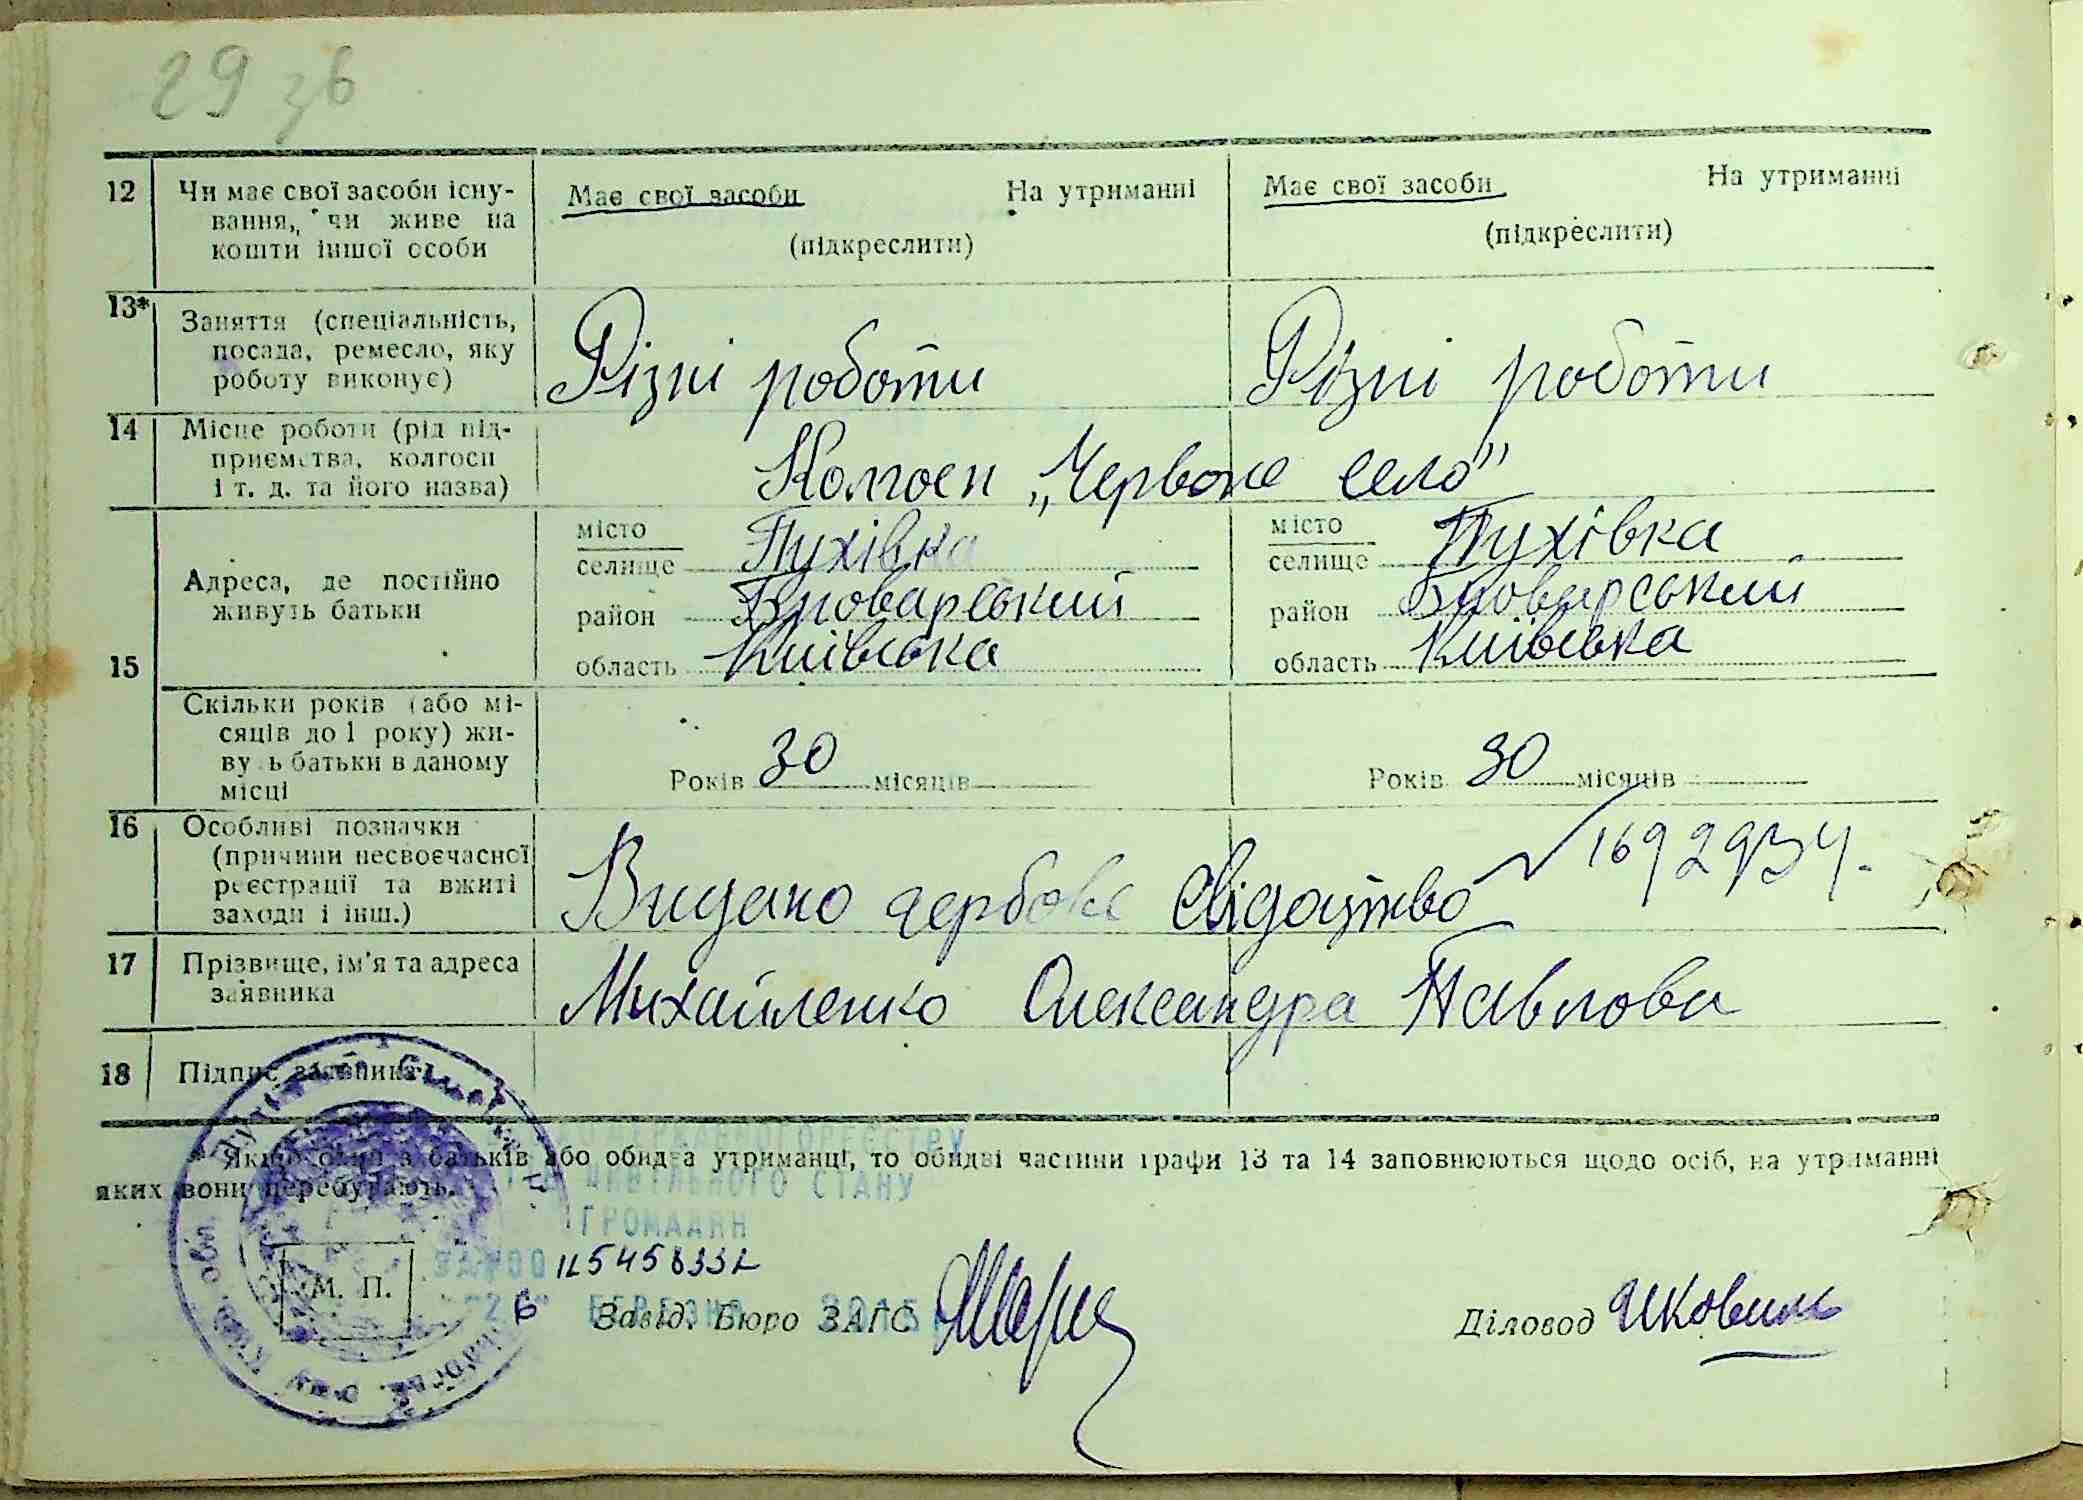 29 зв
12 Чи має свої засоби існу- Має свої засоби На утриманні Має свої засоби На утриманні
вання, чи живе на
кошти іншої особи (підкреслити) (підкреслити)
13* Заняття (спеціальність,
посада, ремесло, яку Різні роботи Різні роботи
роботу виконує)
14 Місце роботи (рід під-
приємства, колгосп Колгосп „Червоне село"
і т. д. та його назва)
15
Адреса, де постійно
живуть батьки
місто
селище Пухівка
район Броварський
область Київська
місто
селище Пухівка
район Броварський
область Київська
Скільки років (або мі-
сяців до 1 року) жи-
вуть батьки в даному
місці
Років 30 місяців Років 30 місяців
16 Особливі позначки
(причини несвоєчасної
реєстрації та вжиті
заходи і інш.)
Видано гербове свідоцтво 1692934.
17 Прізвище, ім'я та адреса
заявника
Михайленко Олександра Павлова
18 Підпис заявника
* Якщо один з батьків або обидва утриманці, то обидві частини графи 13 та 14 заповнюються щодо осіб, на утриманні
яких вони перебувають.
ЦИВІЛЬНОГО СТАНУ
ГРОМАДЯН
М. П.
БЕРЕЗНЯ
Завід. Бюро ЗАГС
Діловод